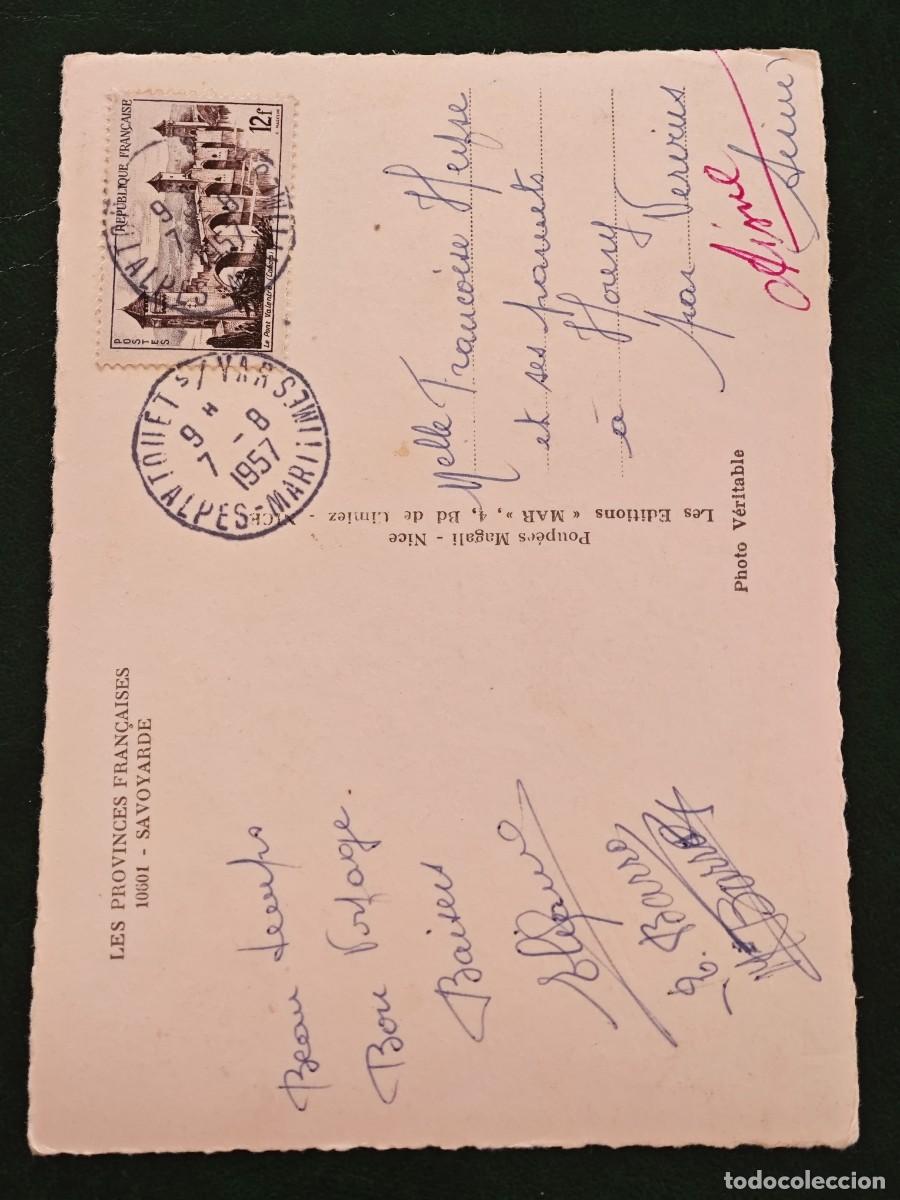 LES PROVINCES FRANÇAISES
10601 - SAVOYARDE
Beau temps
Bon Voyage.
Baisers
Photo Véritable
Poupées Magali - Nice
Les Editions « MAR », 4, Bd de Cimiez - NICE
TOUET s/ VAR
9 H
7 - 8
1957
ALPES-MARITIMES
REPUBLIQUE FRANÇAISE
12f
POSTES
Le Pont Valentré
9
7 - 8
1957
ALPES
Melle Francoise
et ses parents
à
par Vervins
Aisne
todocoleccion